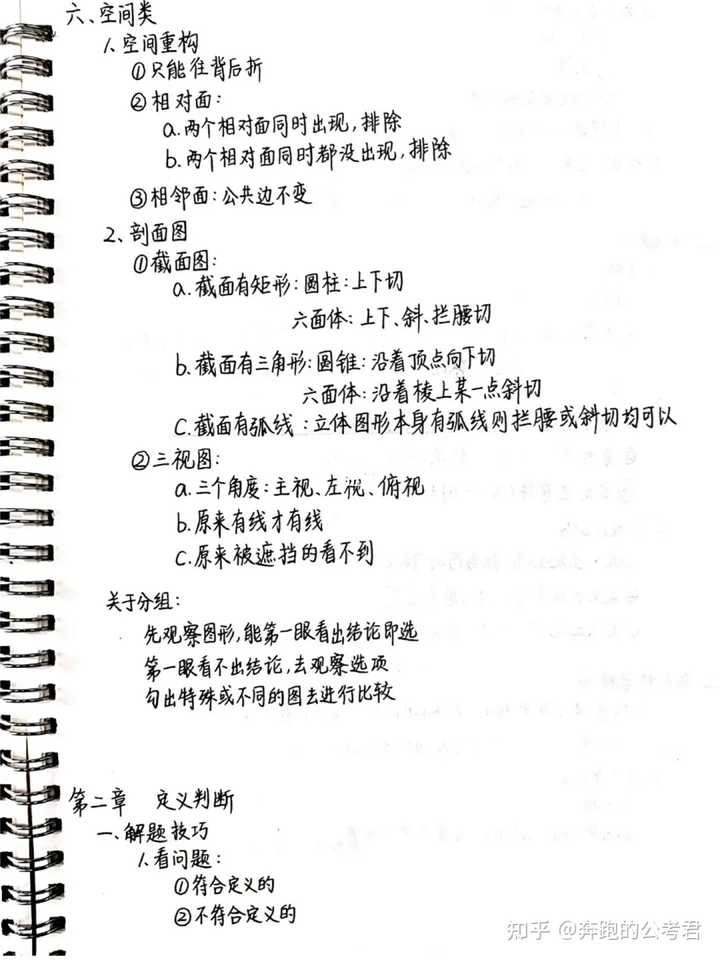 六、空间类
1、空间重构
①只能往背后折
②相对面：
a.两个相对面同时出现，排除
b.两个相对面同时都没出现，排除
③相邻面：公共边不变
2、剖面图
①截面图：
a.截面有矩形：圆柱：上下切
六面体：上下、斜、拦腰切
b.截面有三角形：圆锥：沿着顶点向下切
六面体：沿着棱上某一点斜切
C.截面有弧线：立体图形本身有弧线则拦腰或斜切均可以
②三视图：
a.三个角度：主视、左视、俯视
b.原来有线才有线
C.原来被遮挡的看不到
关于分组：
先观察图形，能第一眼看出结论即选
第一眼看不出结论，去观察选项
勾出特殊或不同的图去进行比较
第二章 定义判断
一、解题技巧
1、看问题：
①符合定义的
②不符合定义的
知乎 @奔跑的公考君